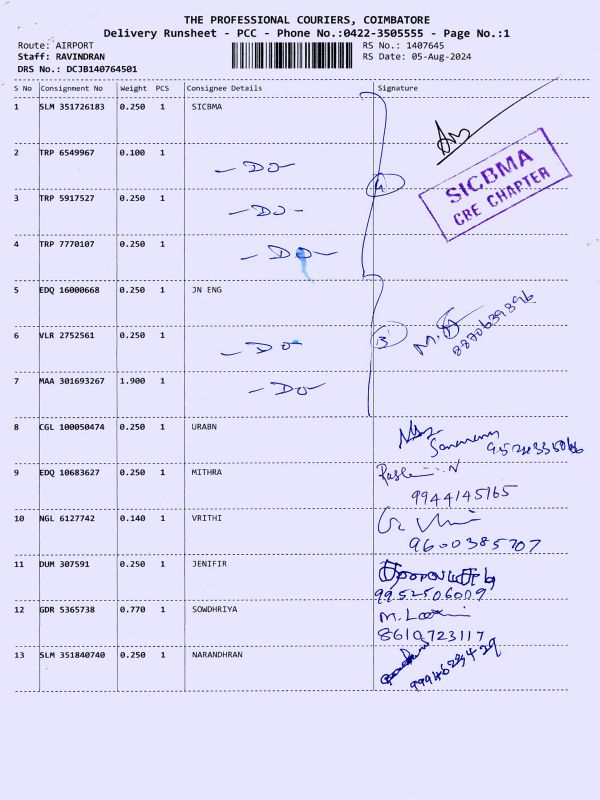 THE PROFESSIONAL COURIERS, COIMBATORE
Delivery Runsheet - PCC - Phone No.:0422-3505555 - Page No.:1
Route: AIRPORT RS No.: 1407645
Staff: RAVINDRAN RS Date: 05-Aug-2024
DRS No.: DCJB140764501
S No Consignment No Weight PCS Consignee Details Signature
1 SLM 351726183 0.250 1 SICBMA
2 TRP 6549967 0.100 1 - DO -
SICBMA
CBE CHAPTER
3 TRP 5917527 0.250 1 - DO -
4
4 TRP 7770107 0.250 1 - DO -
5 EDQ 16000668 0.250 1 JN ENG
6 VLR 2752561 0.250 1 - DO - 3
8870639396
7 MAA 301693267 1.900 1 - DO -
8 CGL 100050474 0.250 1 URABN
9 EDQ 10683627 0.250 1 MITHRA
9944145165
10 NGL 6127742 0.140 1 VRITHI
9600385707
11 DUM 307591 0.250 1 JENIFIR
9952506009
12 GDR 5365738 0.770 1 SOWDHRIYA
8610723117
13 SLM 351840740 0.250 1 NARANDHRAN